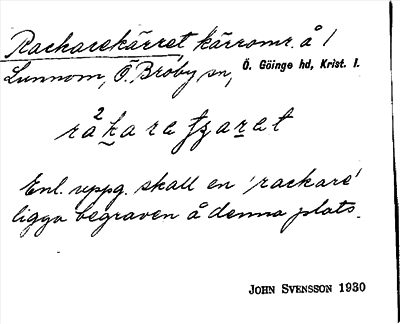 Rackarekärret, kärromr. å 1
Lunnom, Ö. Broby sn, Ö. Göinge hd, Krist. l.
råkaretzaret
Enl. uppg. skall en 'rackare'
ligga begraven å denna plats.
JOHN SVENSSON 1930